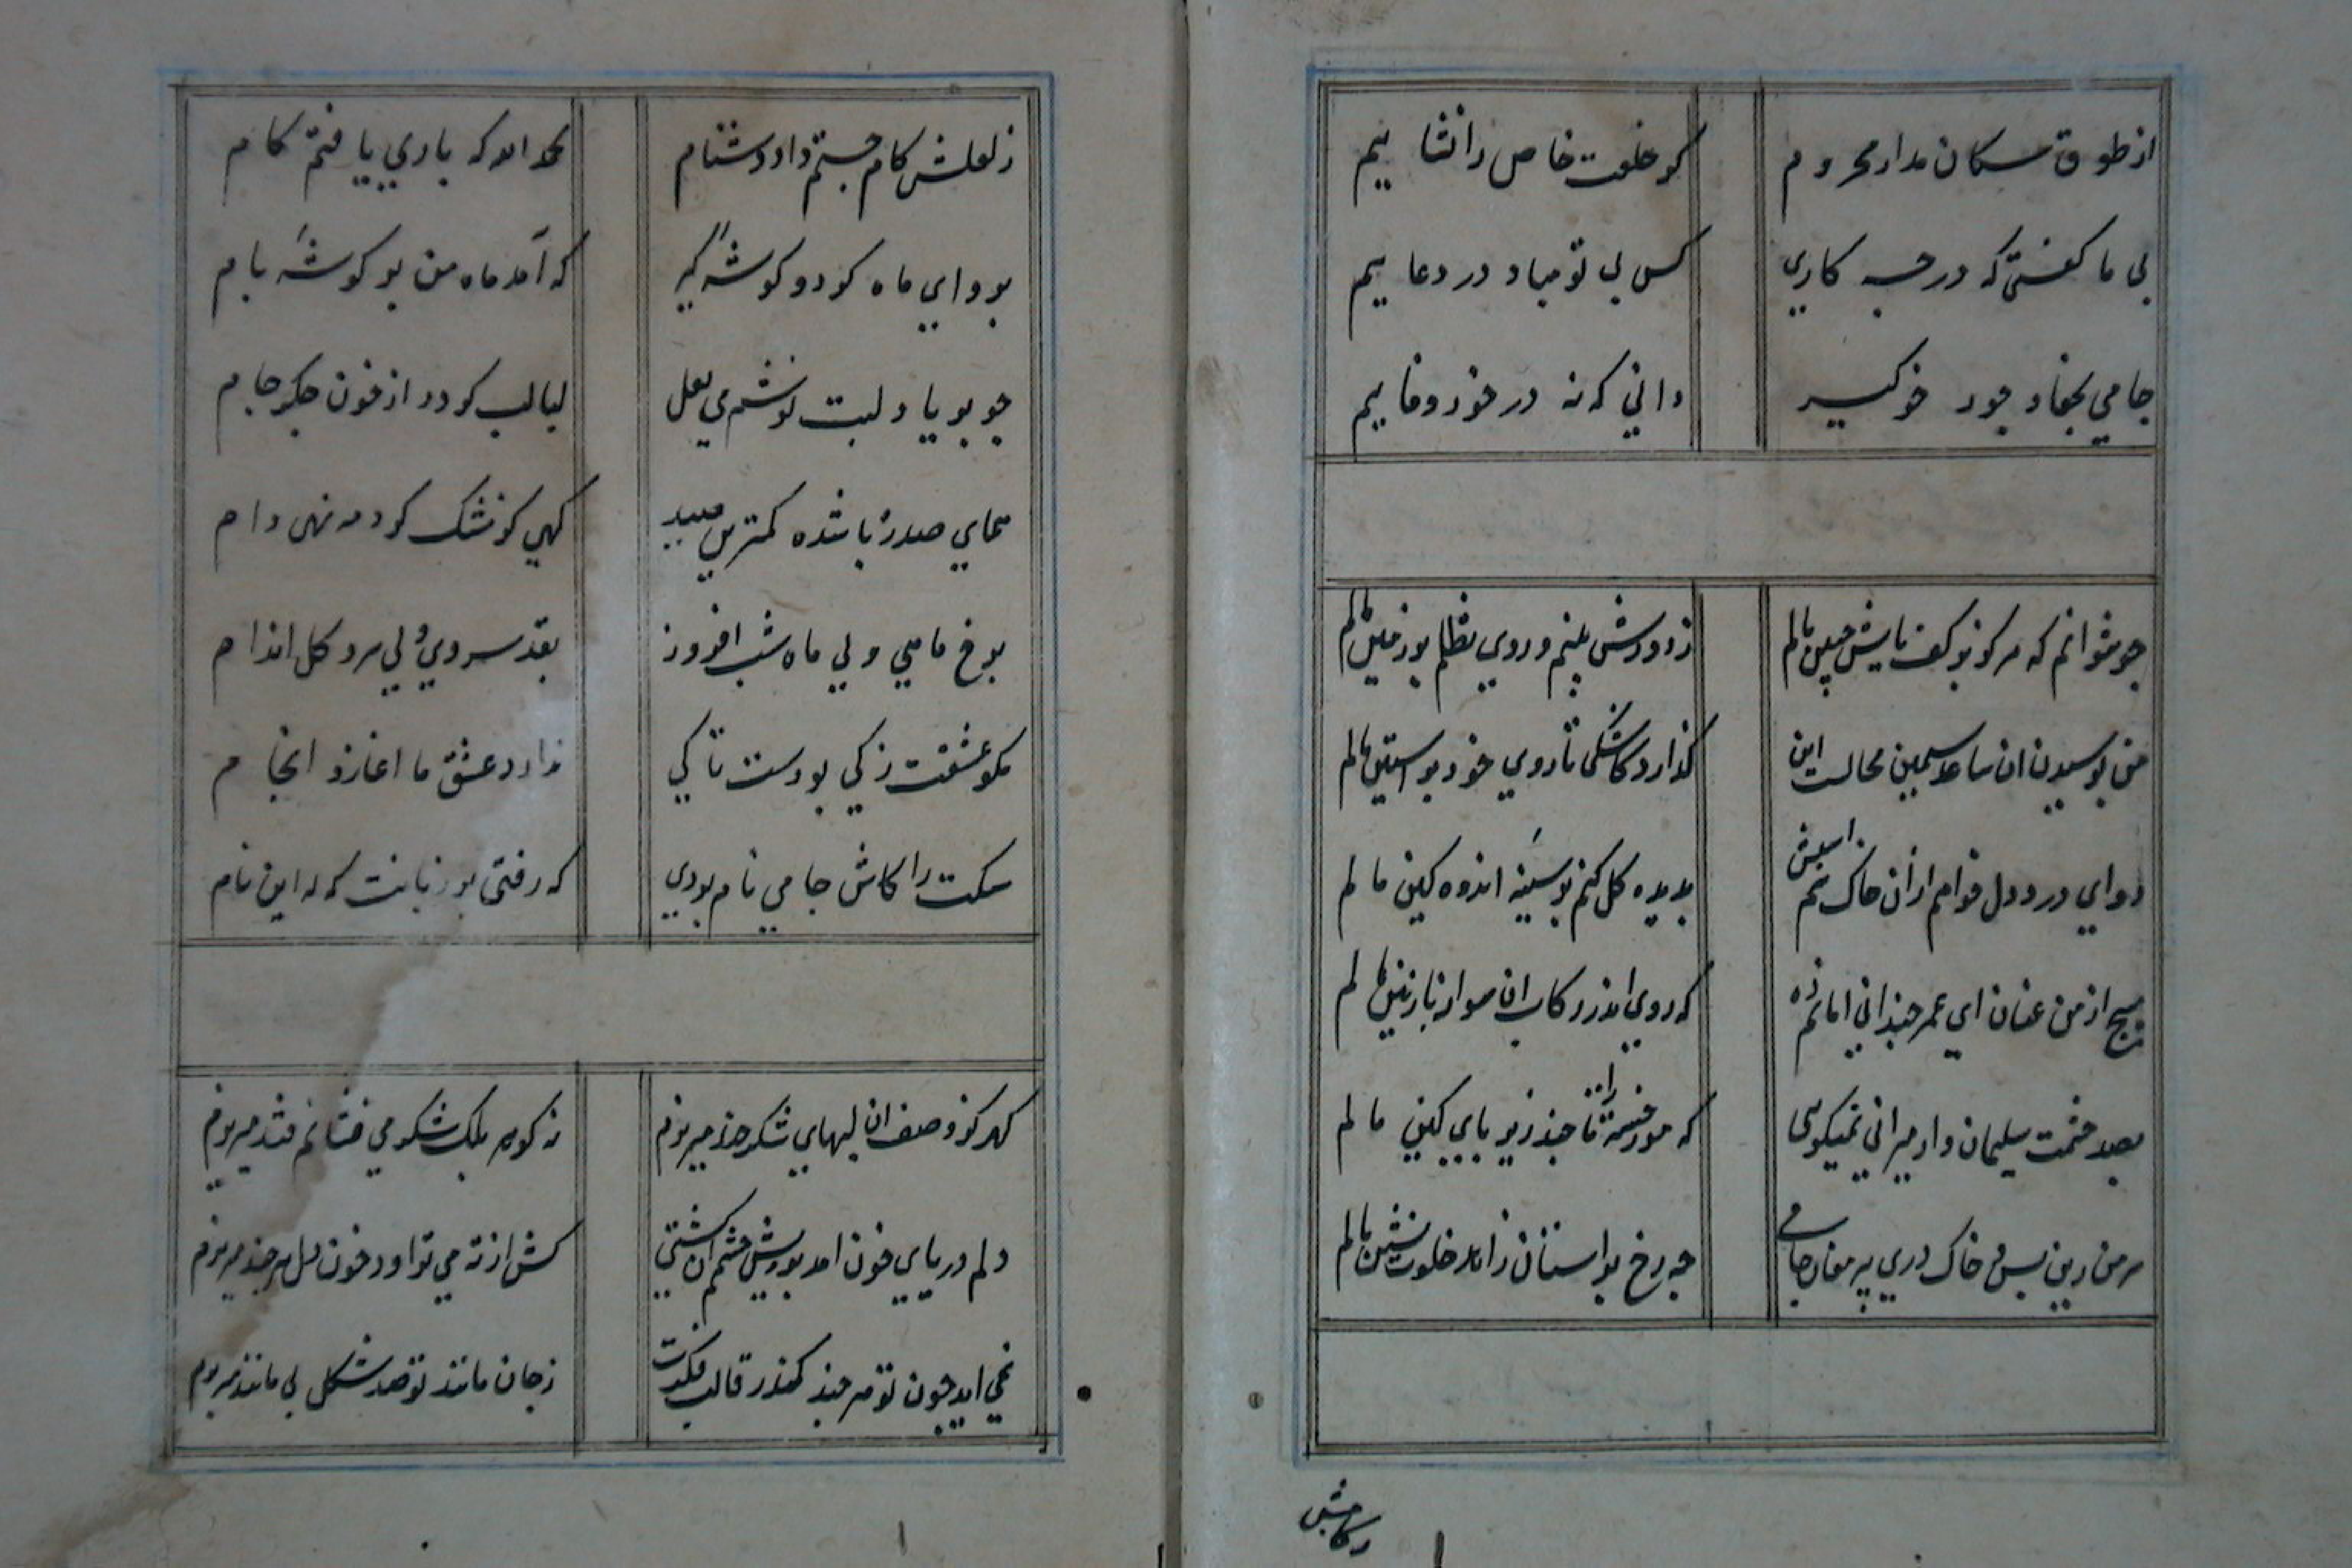 از طوق سکان مدار محروم
کر خلعت خاص را نشا ییم
بی ما کفتی که در جه کاری
کس بی تو مباد در دعا ییم
جامی بجفا و جور خو کیر
دانی که نه در خور وفا ییم
جو نتوانم که هر کز بر کف پایش جبین مالم
ز دورش بینم و روی تظلم بر زمین مالم
من بوسیدن ان ساعد سیمین محالست این
کذارد کاشکی تا روی خود بر استین مالم
دوای درد دل خواهم از ان خاک
بدیده کل کنم بر سینه اندوه کین مالم
مپیچ از من عنان ای عمر جندانی امانم ده
که روی اندر رکاب ان سوار نازنین مالم
بصد حشمت سلیمان وار میرانی نمیکویی
که مور خسته را تا جند زیر پای کین مالم
سر من زین پس و خاک در پیر مغان جامی
جه رخ بر استان زاهد خلوت نشین مالم
ز لعلش کام جستم داد دشنام
بحمد الله که باری یافتم کام
برو ای ماه کردو کوشه کیر
که آمد ماه من بر کوشه بام
جو بر یاد لبت نوشم می لعل
لبالب کردد از خون جکر جام
همای سدره باشد کمترین صید
کهی کز مشک کرد مه نهی دام
برخ ماهی ولی ماه شب افروز
بقد سروی ولی سرو کل اندام
مکو عشقت ز کی بودست تا کی
ندارد عشق ما اغاز و انجام
سکت را کاش جامی نام بودی
که رفتی بر زبانت که که این نام
کهر کز وصف ان لبهای شکر خند میریزم
نه کوهر بلک شکر می فشانم قند میریزم
دلم دریای خون امد برویش جشم ان کشتی
کش از ته می تراود خون دل هر جند میریزم
نمی اید جون تو هر جند کندر قالب فکرت
ز جان مانند تو صد شکل بی مانند میریزم
رکابش